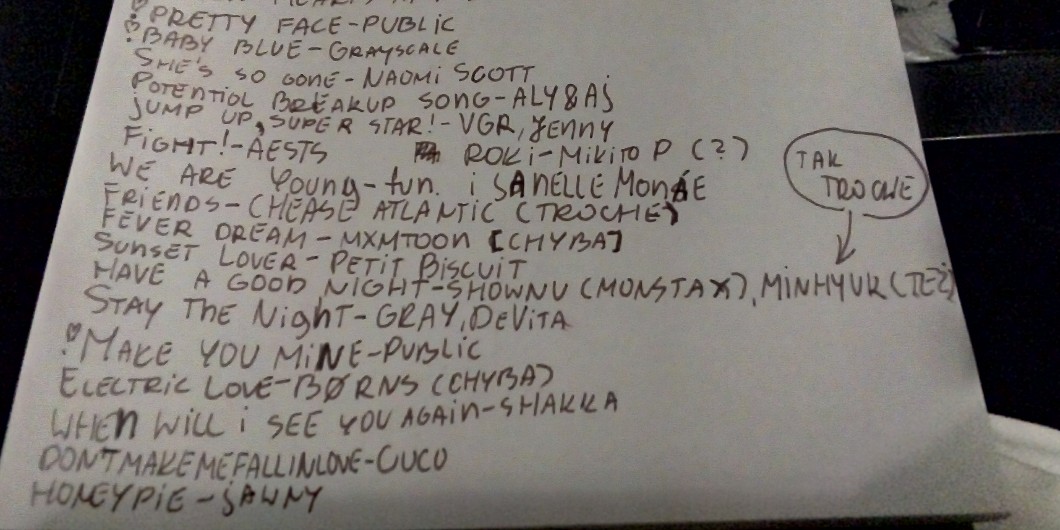 ♡ PRETTY FACE-PUBLIC
♡ BABY BLUE-GRAYSCALE
SHE'S SO GONE-NAOMI SCOTT
POTENTIOL BREAKUP SONG-ALY&AJ
JUMP UP, SUPER STAR!-VGR, JENNY
FIGHT!-AESTS ROKI-MIKITO P (?)
WE ARE Young-fun. i JANELLE MONÁE
FRIENDS-CHEASE ATLANTIC (TROCHE)
FEVER DREAM-MXMTOON [CHYBA]
SUNSET LOVER-PETIT BISCUIT
HAVE A GOOD NIGHT-SHOWNU (MONSTAX), MINHYUK (TEŻ)
TAK
TROCHE
STAY THE NighT-GRAY, DEVITA
♡ MAKE YOU MINE-PUBLIC
ELECTRIC LOVE-BØRNS (CHYBA)
WHEN WILL i SEE YOU AGAIN-SHAKKA
DONTMAKEMEFALLINLOVE-CUCO
HONEYPIE-JAWNY